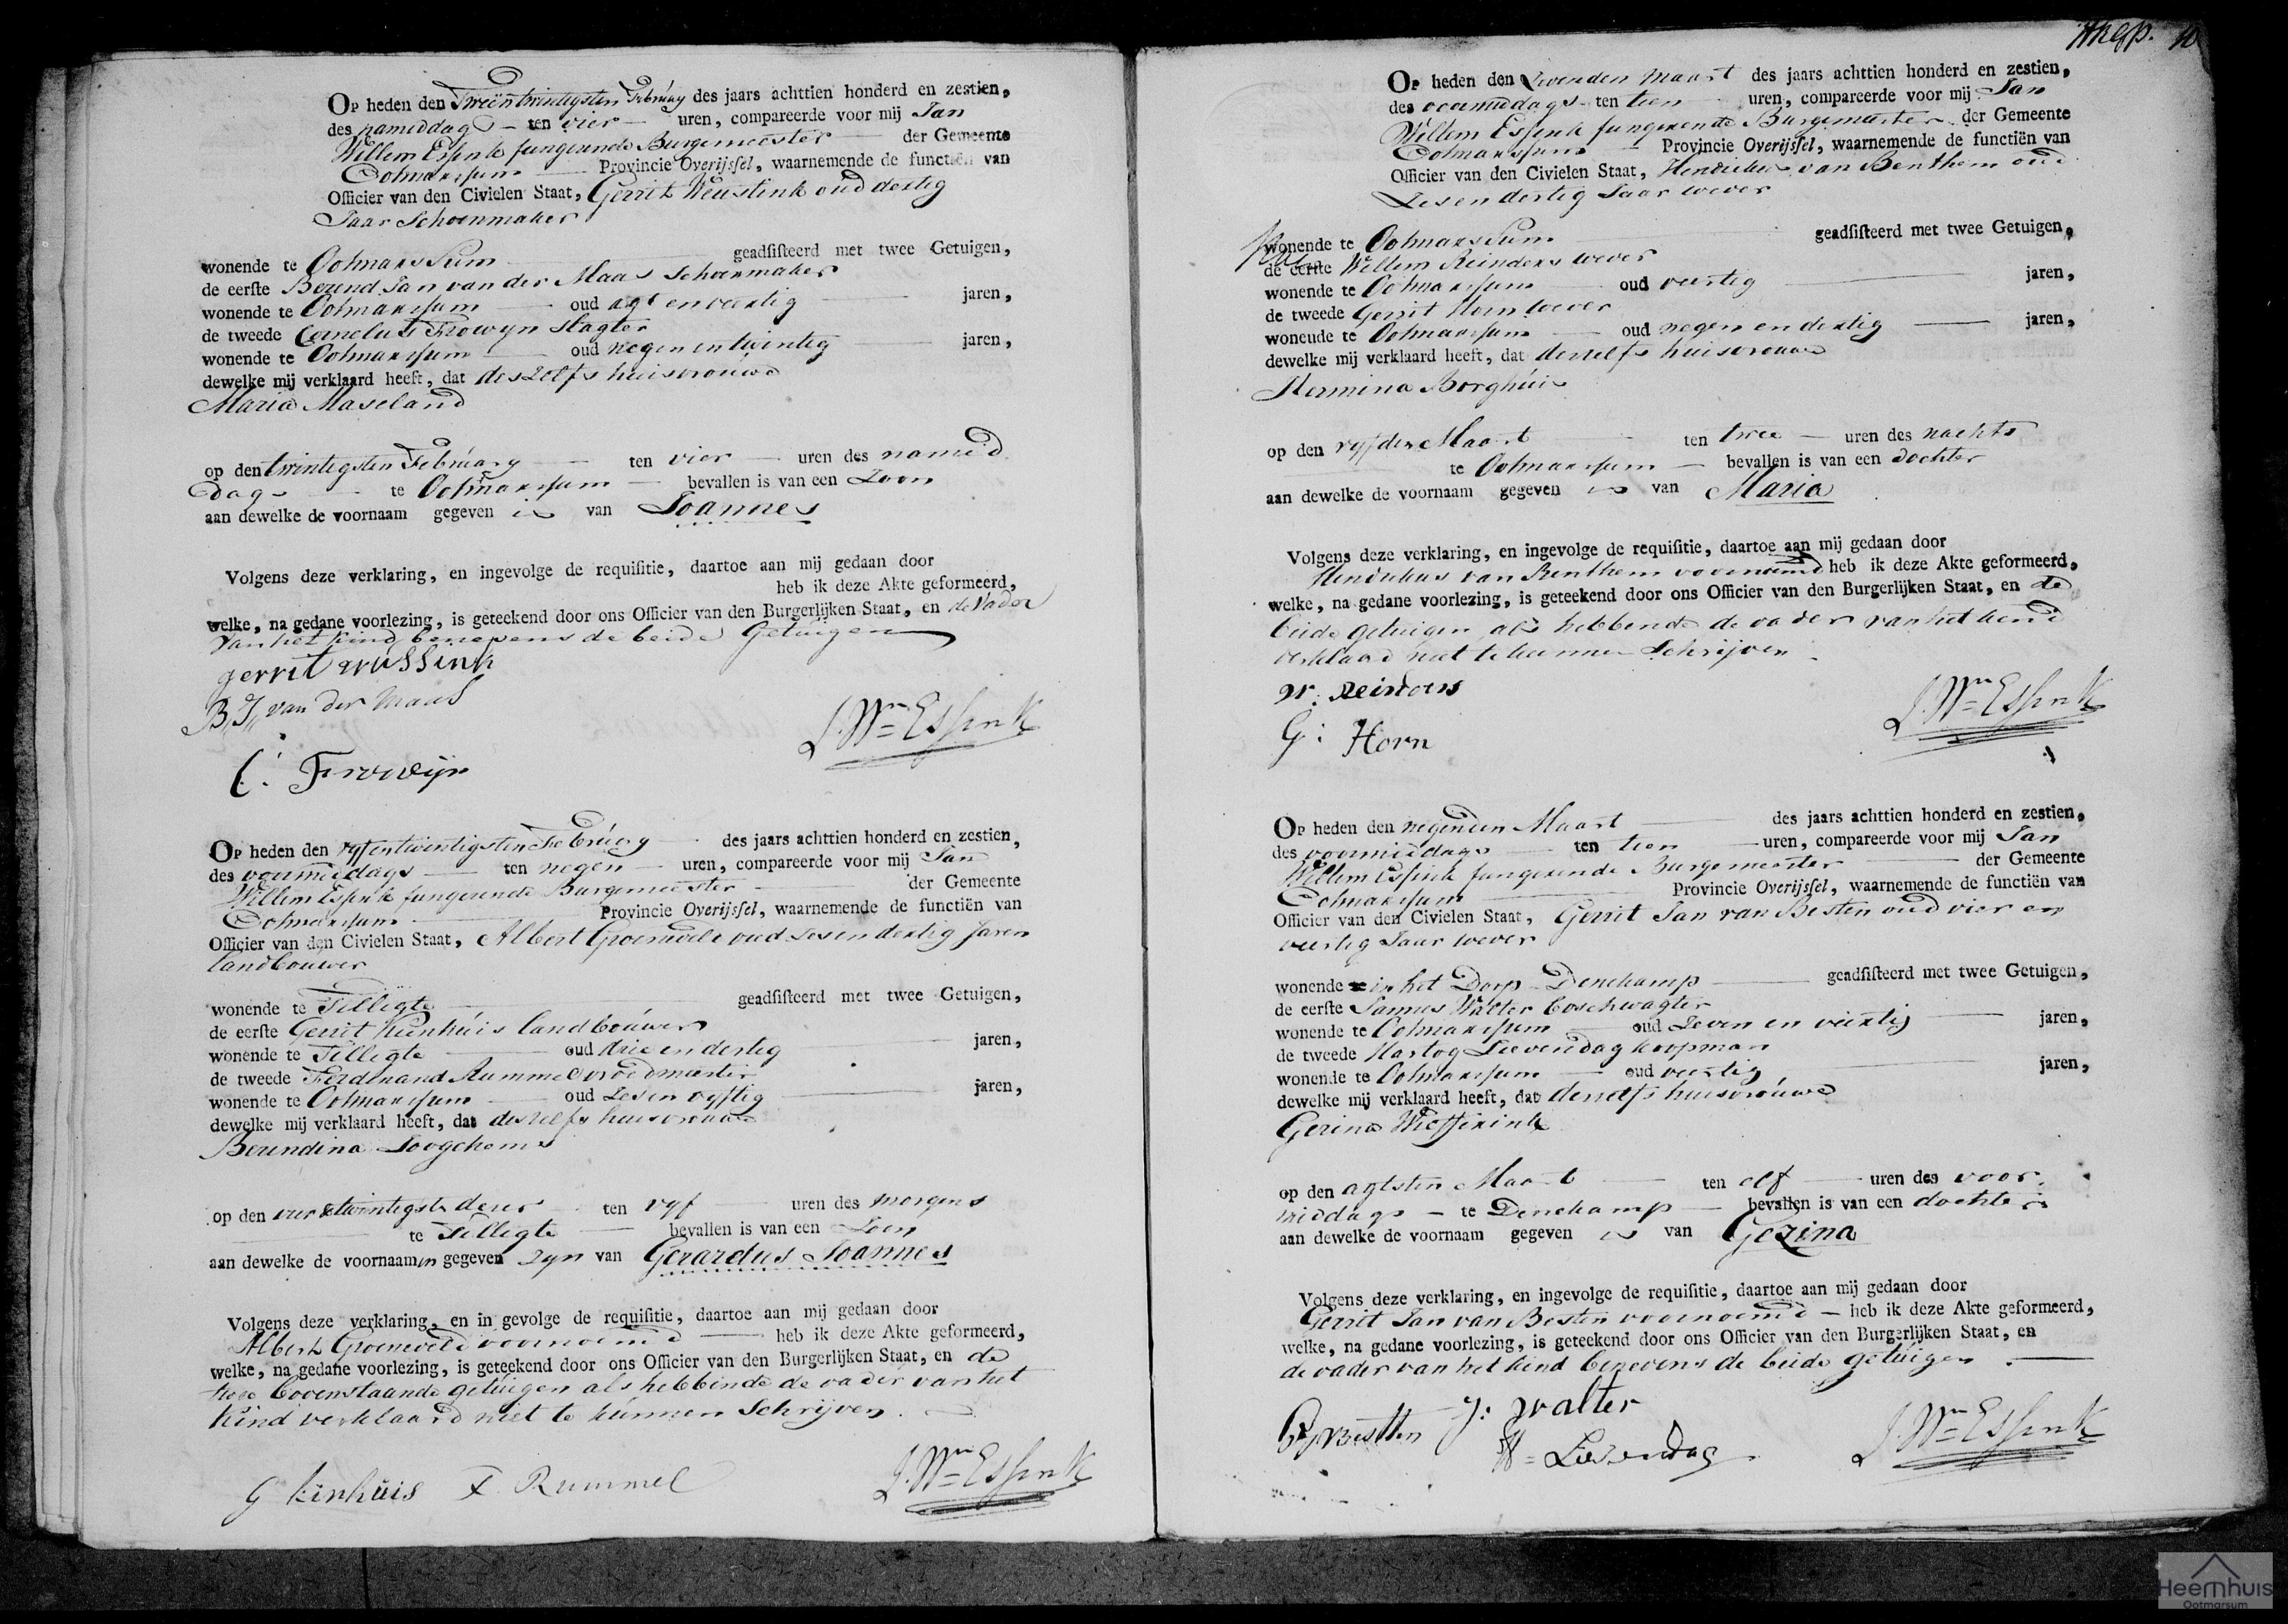 Op heden den Tweentwintigsten February des jaars achttien honderd en zestien,
des namiddags ten vier uren, compareerde voor mij Jan
Willem Essink fungerende Burgemeester der Gemeente
Ootmarssum Provincie Overijssel, waarnemende de functiën van
Officier van den Civielen Staat, Gerrit Weustink oud dertig
Jaar Schoenmaker
wonende te Ootmarssum geadsisteerd met twee Getuigen,
de eerste Berend Jan van der Maas Schoenmaker
wonende te Ootmarssum oud agt en veertig jaren,
de tweede Cornelus Frowyn Slagter
wonende te Ootmarssum oud negen en twintig jaren,
dewelke mij verklaard heeft, dat deszelfs huisvrouwe
Maria Maseland
op den twintigsten February ten vier uren des namid
dags te Ootmarssum bevallen is van een Zoon
aan dewelke de voornaam gegeven is van Joannes
Volgens deze verklaring, en ingevolge de requisitie, daartoe aan mij gedaan door
heb ik deze Akte geformeerd,
welke, na gedane voorlezing, is geteekend door ons Officier van den Burgerlijken Staat, en de Vader
van het kind benevens de beide Getuigen
gerrit wüssink
B, J, van der Maas
J. Wm Essink
C: Frowijn
Op heden den vyfentwintigsten February des jaars achttien honderd en zestien,
des voormiddags ten negen uren, compareerde voor mij Jan
Willem Essink fungerende Burgemeester der Gemeente
Ootmarssum Provincie Overijssel, waarnemende de functiën van
Officier van den Civielen Staat, Albert Groeneveld oud Zes en dertig Jaren
landbouwer
wonende te Tilligte geadsisteerd met twee Getuigen,
de eerste Gerrit Kienhúis landboúwer
wonende te Tilligte oud drie en dertig jaren,
de tweede Ferdinand Rummel vroedmeester
wonende te Ootmarssum oud Zes en vyftig jaren,
dewelke mij verklaard heeft, dat deszelfs huisvrouwe
Berendina
op den vier & twintigste dezer ten vyf uren des morgens
te Tilligte bevallen is van een Zoon
aan dewelke de voornaamen gegeven zyn van Gerardus Joannes
Volgens deze verklaring, en in gevolge de requisitie, daartoe aan mij gedaan door
Albert Groeneveld voornoemd heb ik deze Akte geformeerd,
welke, na gedane voorlezing, is geteekend door ons Officier van den Burgerlijken Staat, en de
twee bovenstaande getúigen als hebbende de vader van het
Kind verklaard niet te kúnnen Schrijven.
G kinhúis F. Rummel J. Wm Essink
10
Op heden den Zevenden Maart des jaars achttien honderd en zestien,
des voormiddags ten tien uren, compareerde voor mij Jan
Willem Essink fungerende Burgemeester der Gemeente
Ootmarssum Provincie Overijssel, waarnemende de functiën van
Officier van den Civielen Staat, Hendrikus van Benthem oud
Zes en dertig Jaar wever
wonende te Ootmarssum geadsisteerd met twee Getuigen,
de eerste Willem Reinders wever
wonende te Ootmarssum oud veertig jaren,
de tweede Gerrit Horn wever
wonende te Ootmarssum oud negen en dertig jaren,
dewelke mij verklaard heeft, dat deszelfs huisvrouwe
Hermina Borghúis
op den vyfden Maart ten twee uren des nachts
te Ootmarssum bevallen is van een dochter
aan dewelke de voornaam gegeven is van Maria
Volgens deze verklaring, en ingevolge de requisitie, daartoe aan mij gedaan door
Hendrikus van Benthem voornoemd heb ik deze Akte geformeerd,
welke, na gedane voorlezing, is geteekend door ons Officier van den Burgerlijken Staat, en de
beide getuigen als hebbende de vader van het kind
verklaard niet te kunnen Schrijven
W: Reinders
J. Wm Essink
G: Horn
Op heden den negenden Maart des jaars achttien honderd en zestien,
des voormiddags ten tien uren, compareerde voor mij Jan
Willem Essink fungerende Burgemeester der Gemeente
Ootmarssum Provincie Overijssel, waarnemende de functiën van
Officier van den Civielen Staat, Gerrit Jan van Besten oud vier en
veertig Jaar wever
wonende in het Dorp Denekamp geadsisteerd met twee Getuigen,
de eerste Jannes Walter boschwagter
wonende te Ootmarssum oud Zeven en veertig jaren,
de tweede Hartog Lievendag koopman
wonende te Ootmarssum oud veertig jaren,
dewelke mij verklaard heeft, dat deszelfs huisvroúwe
Gezina
op den agtsten Maart ten elf uren des voor
middags te Denekamp bevallen is van een dochter
aan dewelke de voornaam gegeven is van Gezina
Volgens deze verklaring, en ingevolge de requisitie, daartoe aan mij gedaan door
Gerrit Jan van Besten voornoemd heb ik deze Akte geformeerd,
welke, na gedane voorlezing, is geteekend door ons Officier van den Burgerlijken Staat, en
de vader van het kind benevens de beide getúigen
J: Walter
H= Lievendag
J. Wm Essink
Heemhuis
Ootmarsum